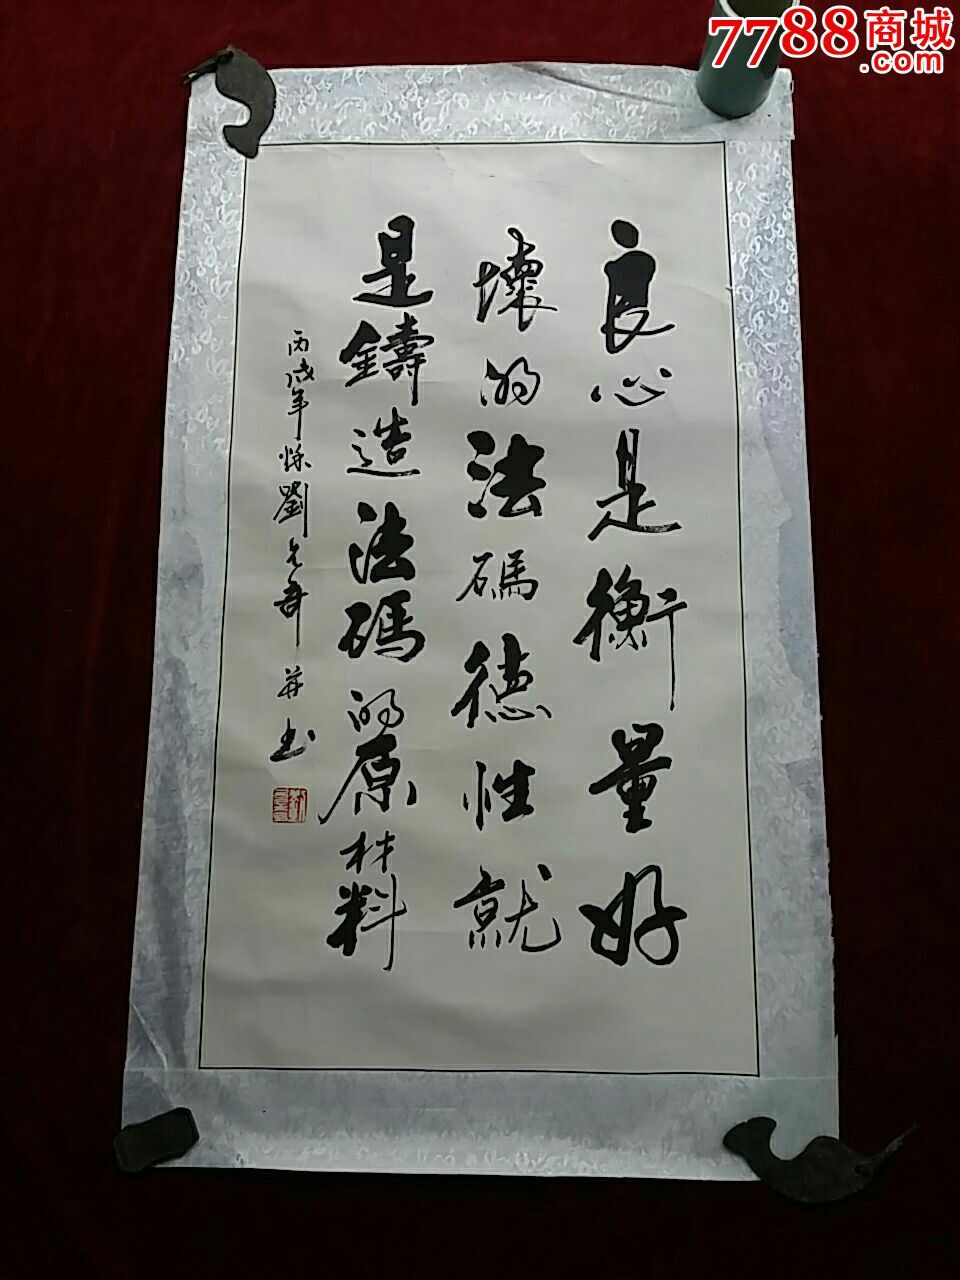 7788商城
.com
良心是衡量好
壞的法碼德性就
是鑄造法碼的原材料
丙戌年 劉 奇并书